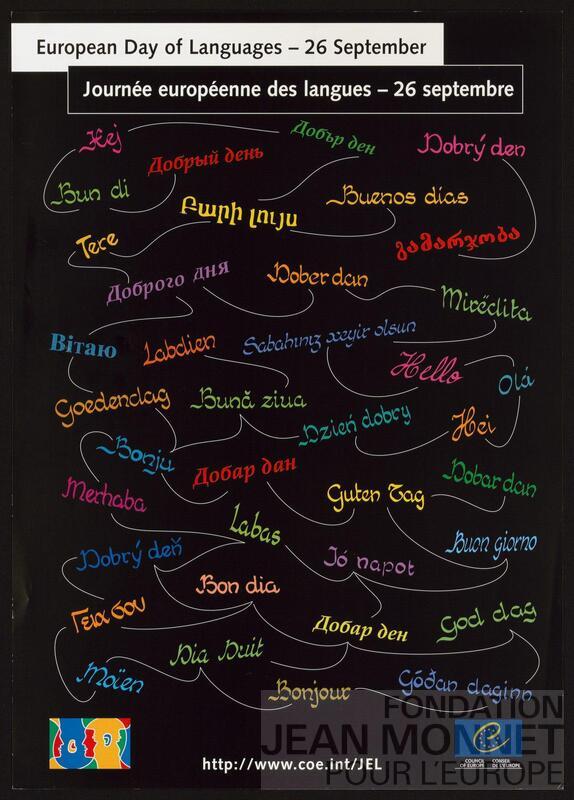 European Day of Languages – 26 September
Journée européenne des langues – 26 septembre
Hej
Добър ден
Dobrý den
Добрый день
Bun di
Բարի լույս
Buenos días
Tere
გამარჯობა
Доброго дня
Dober dan
Mirëdita
Вітаю
Labdien
Sabahınız xeyir olsun
Hello
Olá
Goedendag
Bună ziua
Dzień dobry
Hei
Bonju
Добар дан
Guten Tag
Dobar dan
Merhaba
Labas
Buon giorno
Dobrý deň
Jó napot
Bon dia
Γεια σου
Добар ден
God dag
Dia Duit
Moïen
Bonjour
Góðan daginn
FONDATION
JEAN MONNET
POUR L'EUROPE
http://www.coe.int/JEL
COUNCIL OF EUROPE
CONSEIL DE L'EUROPE